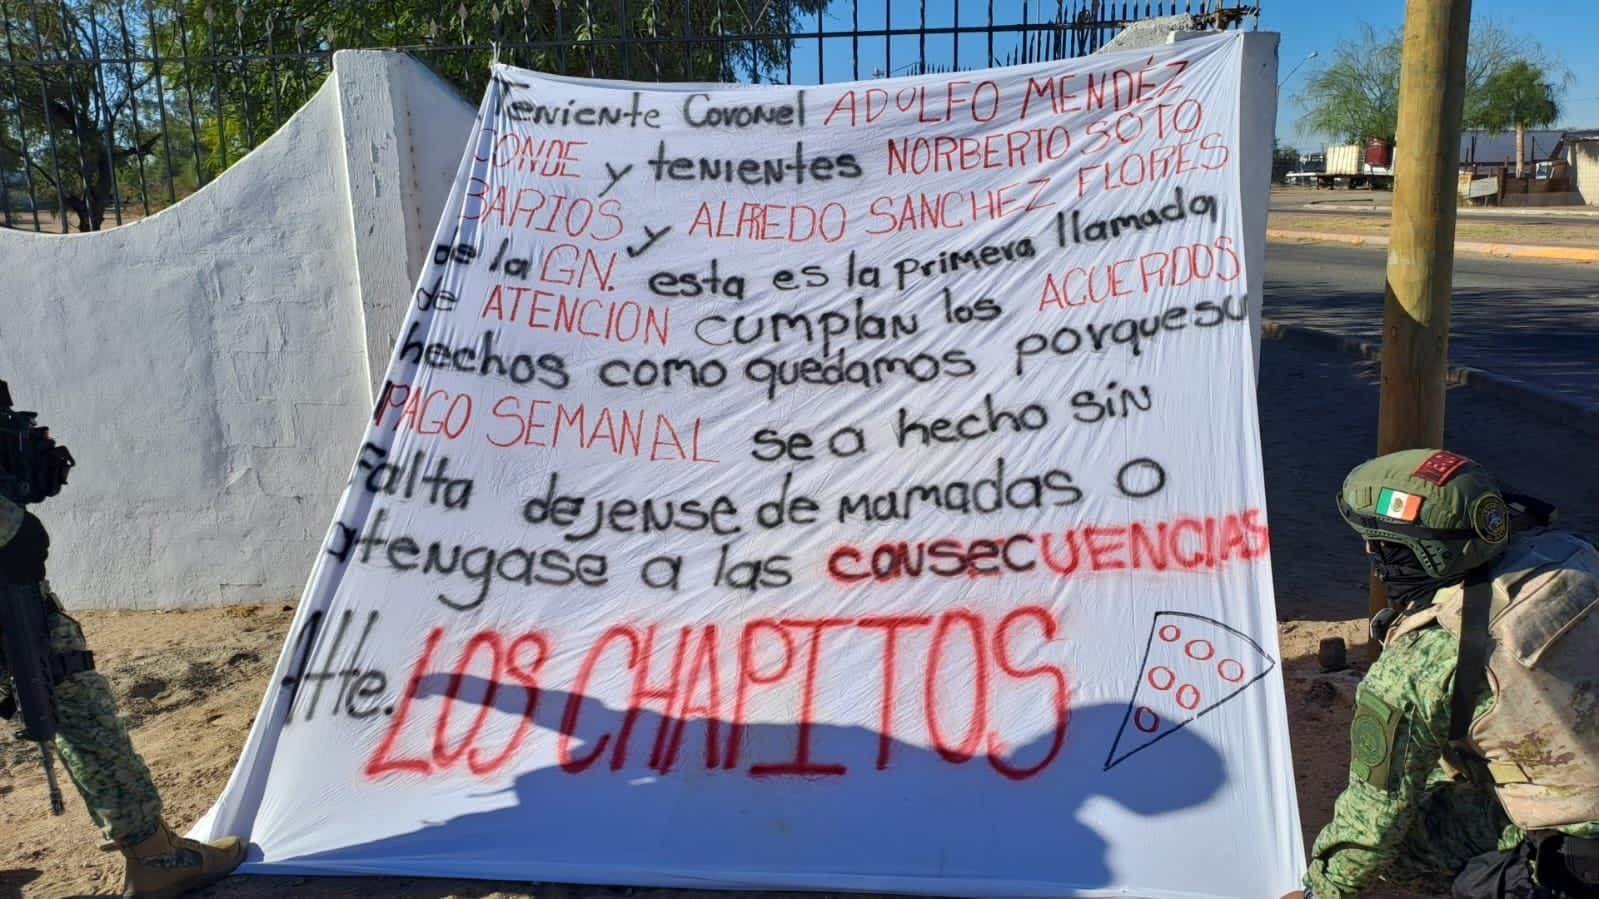 Teniente Coronel ADOLFO MENDÉZ
CONDE y tenientes NORBERTO SOTO
BARIOS y ALFREDO SANCHEZ FLORES
de la GN. esta es la primera llamada
de ATENCION cumplan los ACUERDOS
hechos como quedamos porquesu
PAGO SEMANAL se a hecho sin
Falta dejense de mamadas o
atengase a las consecUENCIAS
Atte. LOS CHAPITOS